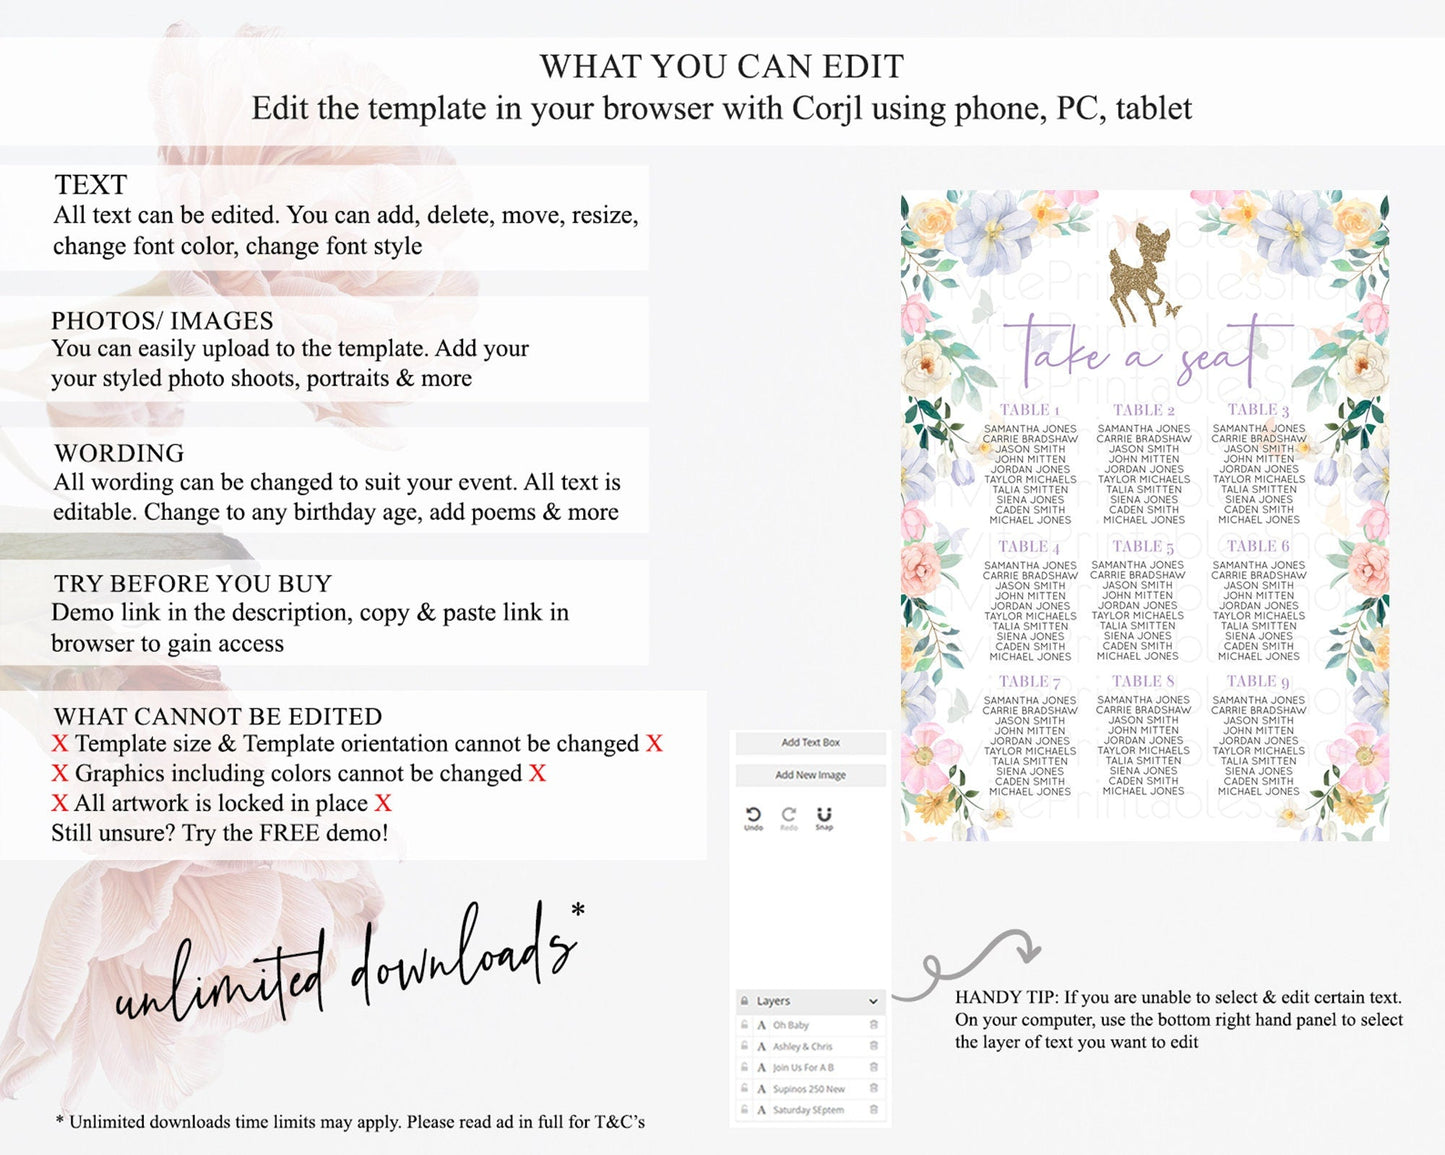 WHAT YOU CAN EDIT
Edit the template in your browser with Corjl using phone, PC, tablet
TEXT
All text can be edited. You can add, delete, move, resize,
change font color, change font style
PHOTOS/ IMAGES
You can easily upload to the template. Add your
your styled photo shoots, portraits & more
WORDING
All wording can be changed to suit your event. All text is
editable. Change to any birthday age, add poems & more
TRY BEFORE YOU BUY
Demo link in the description, copy & paste link in
browser to gain access
WHAT CANNOT BE EDITED
X Template size & Template orientation cannot be changed X
X Graphics including colors cannot be changed X
X All artwork is locked in place X
Still unsure? Try the FREE demo!
unlimited downloads*
* Unlimited downloads time limits may apply. Please read ad in full for T&C's
take a seat
TABLE 1
SAMANTHA JONES
CARRIE BRADSHAW
JASON SMITH
JOHN MITTEN
JORDAN JONES
TAYLOR MICHAELS
TALIA SMITTEN
SIENA JONES
CADEN SMITH
MICHAEL JONES
TABLE 2
SAMANTHA JONES
CARRIE BRADSHAW
JASON SMITH
JOHN MITTEN
JORDAN JONES
TAYLOR MICHAELS
TALIA SMITTEN
SIENA JONES
CADEN SMITH
MICHAEL JONES
TABLE 3
SAMANTHA JONES
CARRIE BRADSHAW
JASON SMITH
JOHN MITTEN
JORDAN JONES
TAYLOR MICHAELS
TALIA SMITTEN
SIENA JONES
CADEN SMITH
MICHAEL JONES
TABLE 4
SAMANTHA JONES
CARRIE BRADSHAW
JASON SMITH
JOHN MITTEN
JORDAN JONES
TAYLOR MICHAELS
TALIA SMITTEN
SIENA JONES
CADEN SMITH
MICHAEL JONES
TABLE 5
SAMANTHA JONES
CARRIE BRADSHAW
JASON SMITH
JOHN MITTEN
JORDAN JONES
TAYLOR MICHAELS
TALIA SMITTEN
SIENA JONES
CADEN SMITH
MICHAEL JONES
TABLE 6
SAMANTHA JONES
CARRIE BRADSHAW
JASON SMITH
JOHN MITTEN
JORDAN JONES
TAYLOR MICHAELS
TALIA SMITTEN
SIENA JONES
CADEN SMITH
MICHAEL JONES
TABLE 7
SAMANTHA JONES
CARRIE BRADSHAW
JASON SMITH
JOHN MITTEN
JORDAN JONES
TAYLOR MICHAELS
TALIA SMITTEN
SIENA JONES
CADEN SMITH
MICHAEL JONES
TABLE 8
SAMANTHA JONES
CARRIE BRADSHAW
JASON SMITH
JOHN MITTEN
JORDAN JONES
TAYLOR MICHAELS
TALIA SMITTEN
SIENA JONES
CADEN SMITH
MICHAEL JONES
TABLE 9
SAMANTHA JONES
CARRIE BRADSHAW
JASON SMITH
JOHN MITTEN
JORDAN JONES
TAYLOR MICHAELS
TALIA SMITTEN
SIENA JONES
CADEN SMITH
MICHAEL JONES
Add Text Box
Add New Image
Undo Redo Snap
Layers
A Oh Baby
A Ashley & Chris
A Join Us For A B
A Supinos 250 New
A Saturday SEptem
HANDY TIP: If you are unable to select & edit certain text.
On your computer, use the bottom right hand panel to select
the layer of text you want to edit